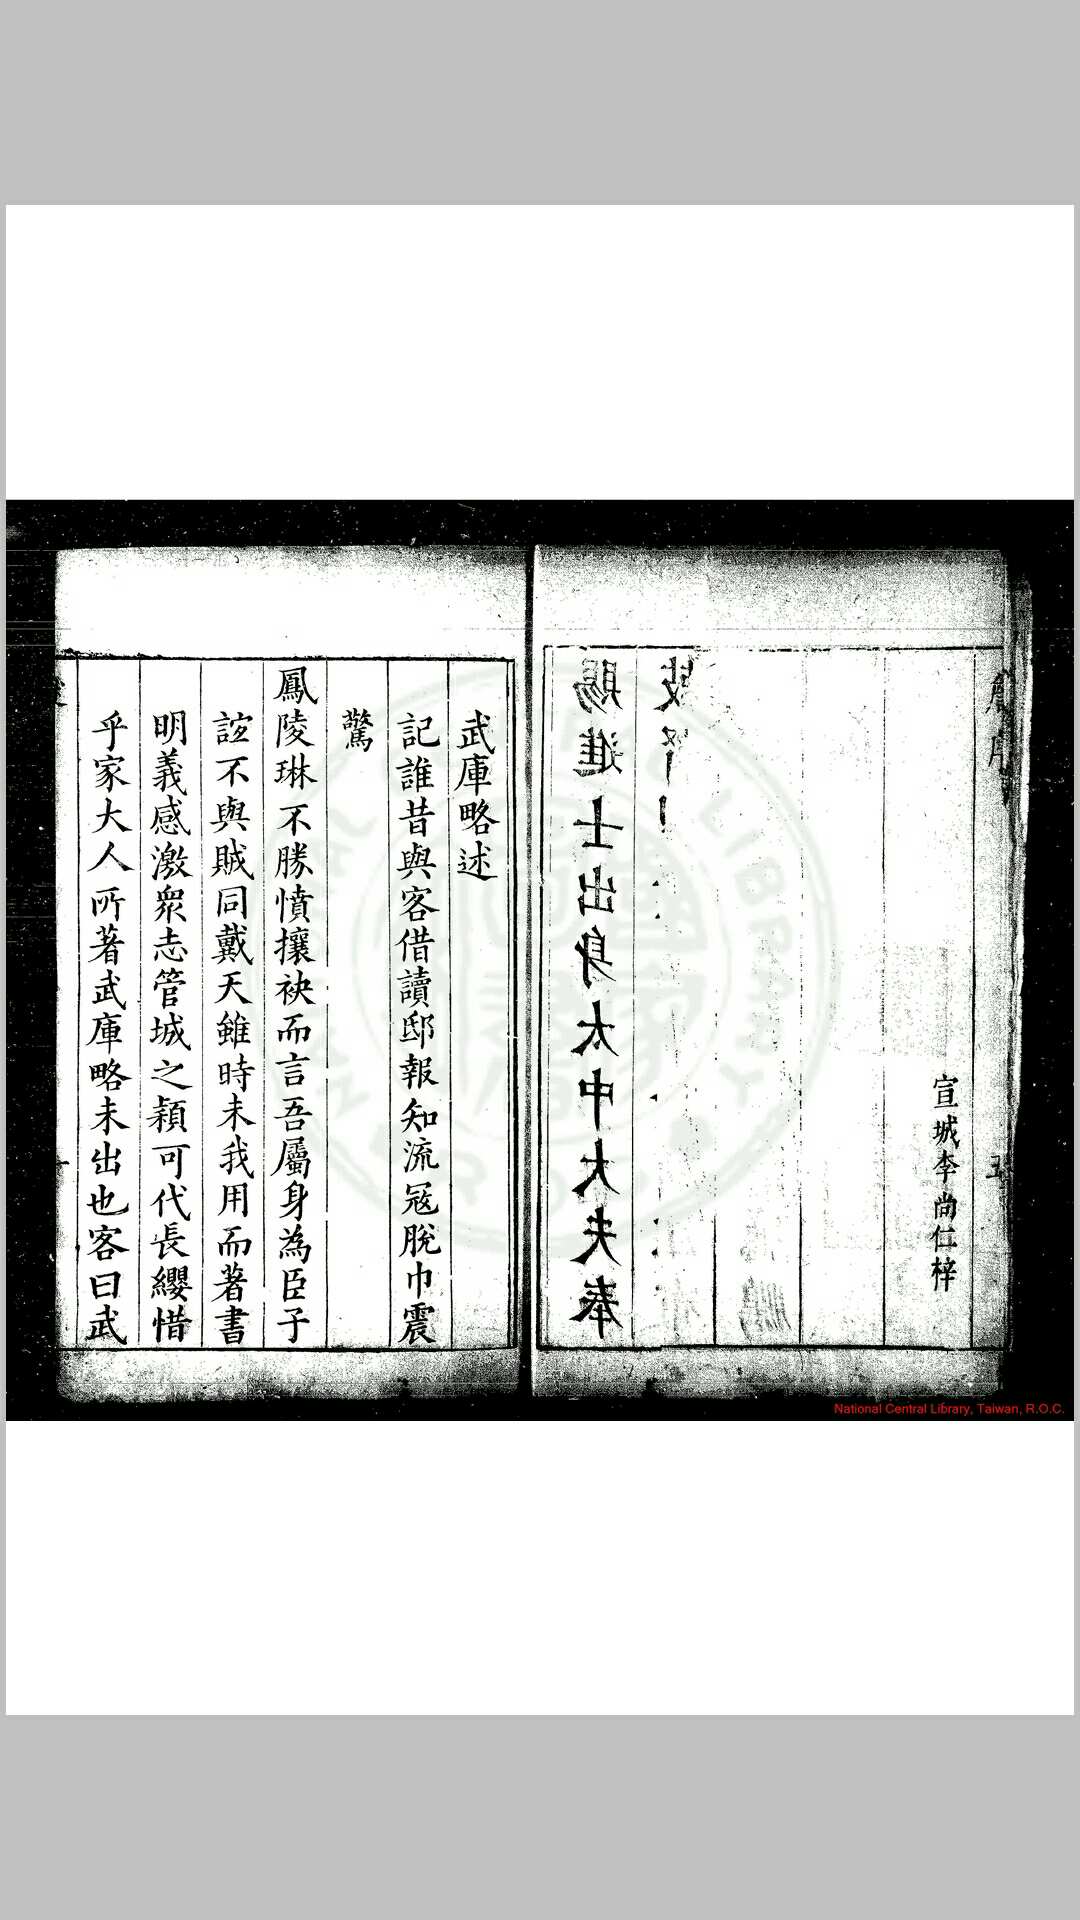 宣城李尚仁梓
賜進士出身太中大夫奉
武庫略述
記誰昔與客借讀邸報知流冦脫巾震
驚
鳳陵琳不勝憤攘袂而言吾屬身為臣子
誼不與賊同戴天雖時未我用而著書
明義感激衆志管城之穎可代長纓惜
乎家大人所著武庫略未出也客曰武
National Central Library, Taiwan, R.O.C.